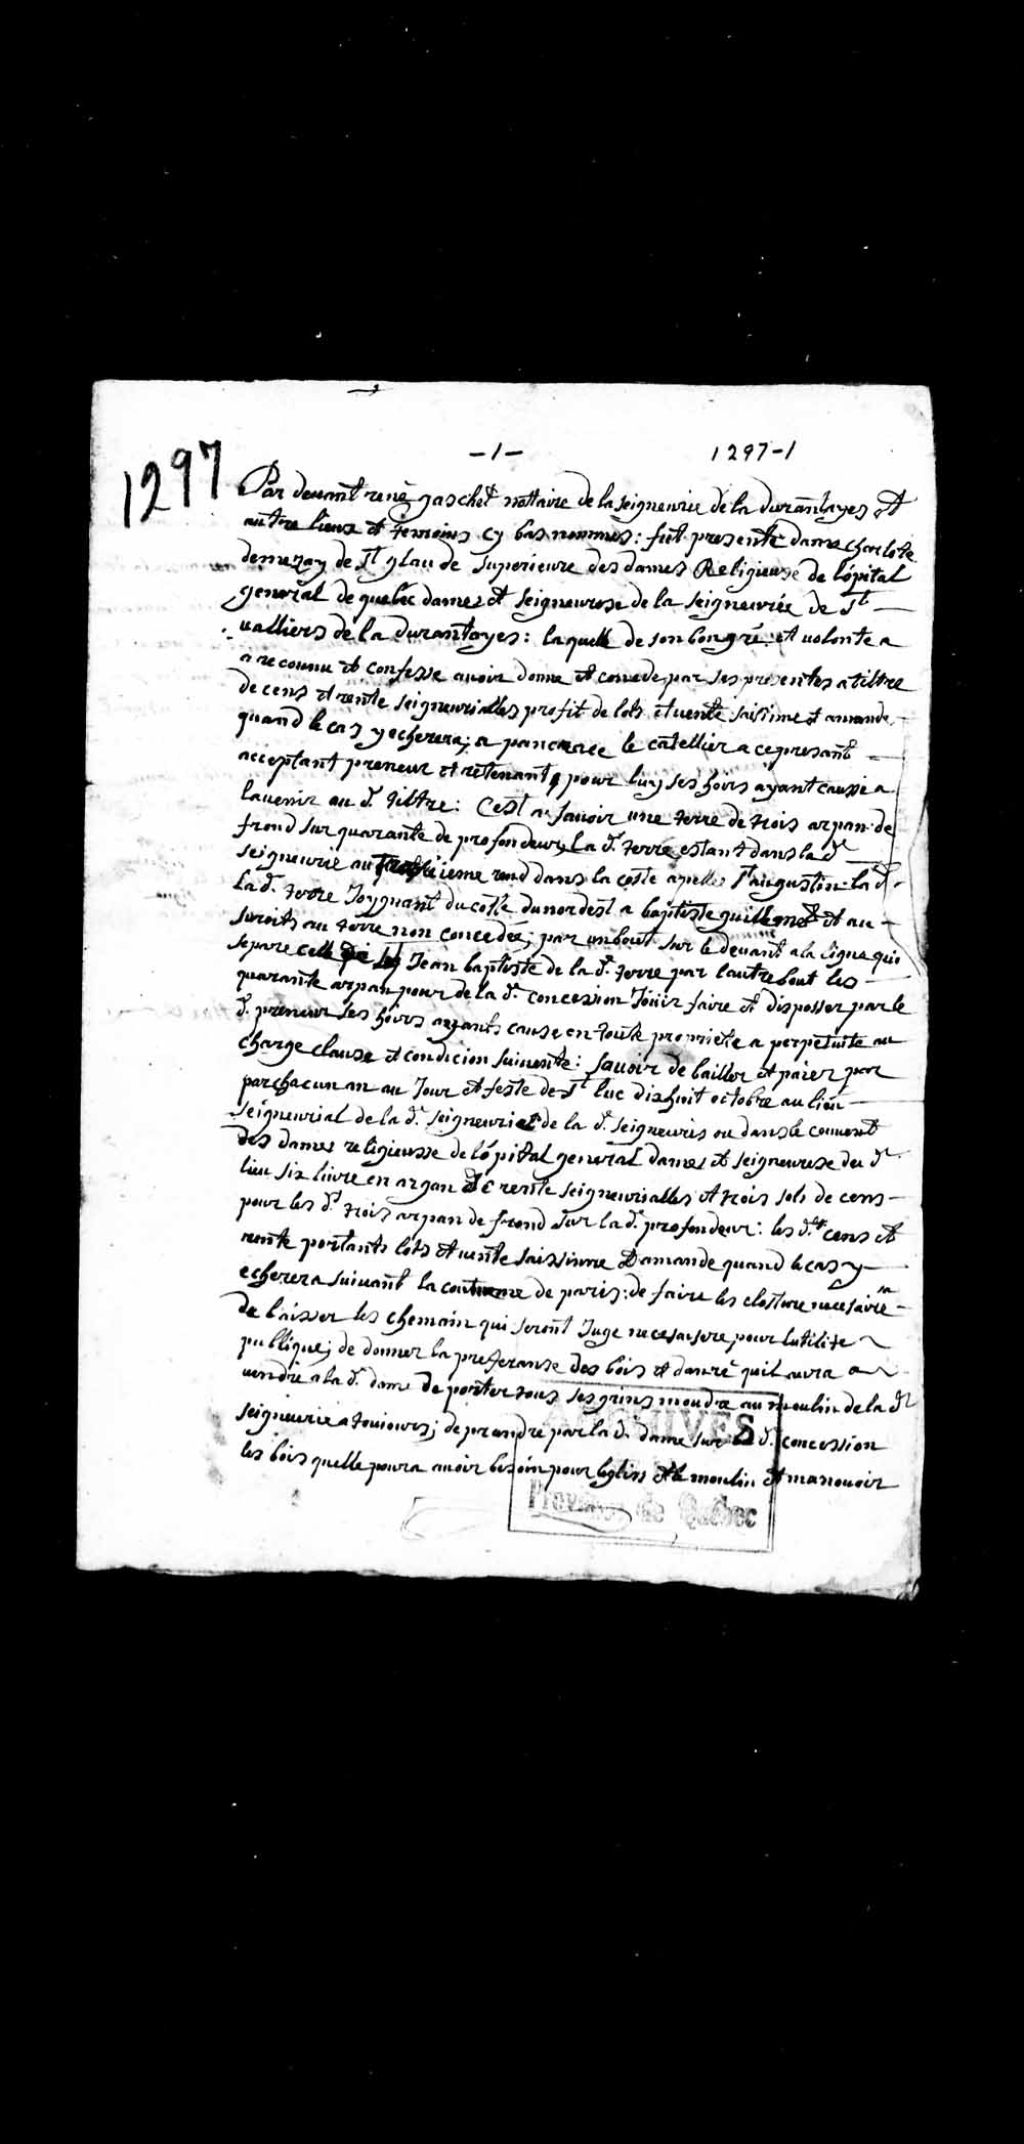 -1- 1297-1
1297
Par devant renê gaschet nottaire de la seigneurie de la durantayes et
autre lieux et temoins cy bas nommes : fut presente dame charlotte
demezay de St glaude superieure des dames Religieuse de lópital
general de quebec dames et seigneurese de la seigneurée de St
valliers de la durantayes : laquelle de son bon gré et volonte a
a reconnu et confesse avoir donne et concede par ses presentes a tiltre
de cens et rente seigneurialles profit de lots et vente saisinne et amande
quand le cas y echerera ; a pancrace le catellier a ce presant
acceptant preneur et retenant pour luy ses hoirs ayant causse a
lavenir au d. tiltre : C'est a savoir une terre de trois arpan de
frond sur quarante de profondeur, La d. terre estant dans la d.
seigneurie au ieme rend dans la coste apelles St augustin la d.
La d. terre Joygnant du coste du nordest a baptiste guillemet et au
suroits au terre non concedée ; par un bout sur le devant a la ligne qui
separe celle de Jean baptiste de la d. terre par lautre bout les
quarante arpan pour de la d. concession Jouir faire et disposser par le
d. preneur ses hoirs ayants cause en toute propriete a perpetuite au
charge clause et condicion suivente : savoir de bailler et paier par
par chacun an au Jour et feste de St luc dix huit octobre au lieu
seigneurial de la d. seigneurie de la d. seigneuris ou dans le couvent
des dames religieusse de lópital general dames et seigneurese du d.
lieu six livre en argan de rente seigneurialles et trois sols de cens
pour les d. trois arpan de frond sur la d. profondeur : les d.ts cens et
rente portants lots et vente saissinne et amande quand le cas y
echerera suivant la coutume de paris : de faire les closture necesaire
de laisser les chemain qui seront Juge necesaisere pour lutilite
publlique ; de donner la preferanse des bois et danré quil aura a
vendre a la d. dame de porter tous ses grins moudre au moulin de la d.
seigneurie a toujours ; de prandre par la d. dame sur la d. concession
les bois quelle poura avoir besoin pour leglise et le moulin et manouoir
ARCHIVES
Province de Québec